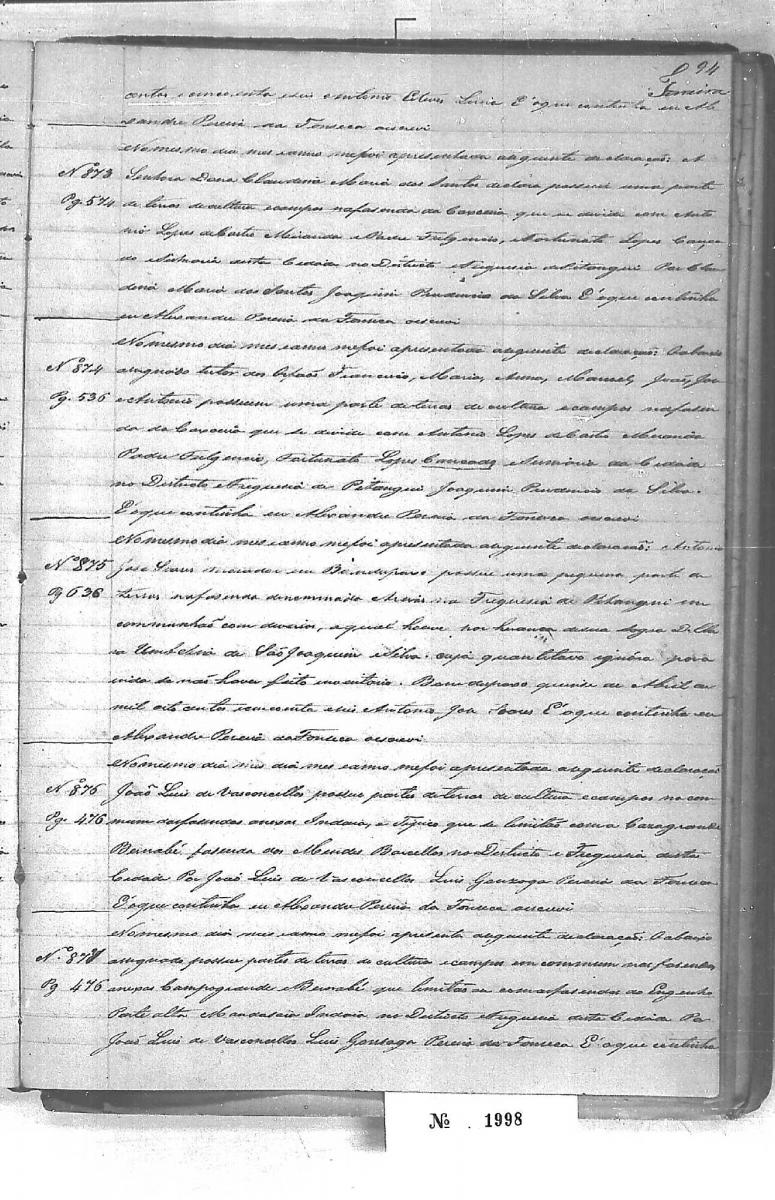 94
Ferreira
centos e cincoenta e seis Antonio Esteves Lima E' o que continha eu Ale
xandre Pereira da Fonseca escrevi
No mesmo dia mes e anno me foi apresentada a seguinte declaração: A
Nº 873
Senhora Dona Claudina Maria dos Santos declara possuir uma parte
Pg. 574
de terras de cultura e campos na fasenda da que se divide com Anto
nio Lopes de Castro Miranda e Padre Fulgencio, e Fortunato Lopes Cança
do e desta Cidade no Districto e Freguesia de Pitangui Por Clau
dina Maria dos Santos Joaquim Prudencio da Silva E' o que continha
eu Alexandre Pereira da Fonseca escrevi
No mesmo dia mes e anno me foi apresentada a seguinte declaração: O abaixo
Nº 874
assignado tutor dos Orfãos Francisco, Maria, Anna, Manoel, João, José
Pg. 535
e Antonio possuem uma parte de terras de cultura e campos na fasen
da da que se divide com Antonio Lopes de Castro Miranda
Padre Fulgencio, Fortunato Lopes Cancado da Cidade
no Districto e Freguesia de Pitangui Joaquim Prudencio da Silva.
E' o que continha eu Alexandre Pereira da Fonseca escrevi
No mesmo dia mes e anno me foi apresentada a seguinte declaração: Antonio
Nº 875
José Soares morador em Bomdespaxo possue uma pequena parte de
Pg 636
terras na fasenda denominada na Freguesia de Pitangui em
communhão com diversos, a qual houve por herança de sua sogra
Umbelina de São Joaquim e Silva cuja quantitativo ignóra por a
inda se não haver feito inventario. Bomdespaxo quinse de Abril de
mil oito centos cincoenta e seis Antonio José Soares E' o que continha eu
Alexandre Pereira da Fonseca escrevi
No mesmo dia mes dia mes e anno me foi apresentada a seguinte declaração
Nº 876
João Luis de Vasconcellos possue partes de terras de cultura e campos no com
Pg. 476
mum das fasendas anexas Indaia, e que se limitão com a Campogrande
Bernabé fasenda dos Mendes Barcellos no Districto e Freguesia desta
Cidade Por João Luis de Vasconcellos Luis Gonzaga Pereira da Fonseca
E' o que continha eu Alexandre Pereira da Fonseca escrevi
No mesmo dia mes e anno me foi apresenta a seguinte declaração: O abaixo
Nº 877
assignado possue partes de terras de cultura e campos em commum nas fasendas
Pg 476
anexas Campogrande e Bernabé que limitão se com as fasendas do Engenho
Ponte alta Indaia no Districto e Freguesia desta Cidade Por
João Luis de Vasconcellos Luis Gonzaga Pereira da Fonseca E' o que continha
Nº 1998